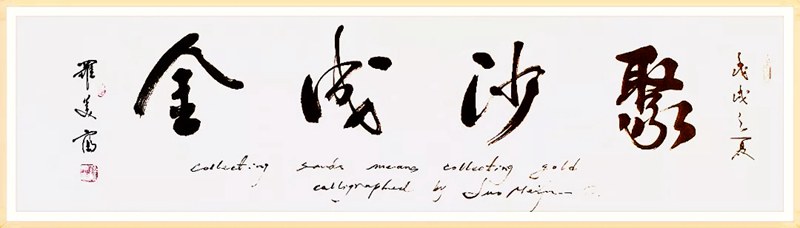 戊戌之夏
聚沙成金
羅美富
collecting sands means collecting gold
calligraphed by Luo